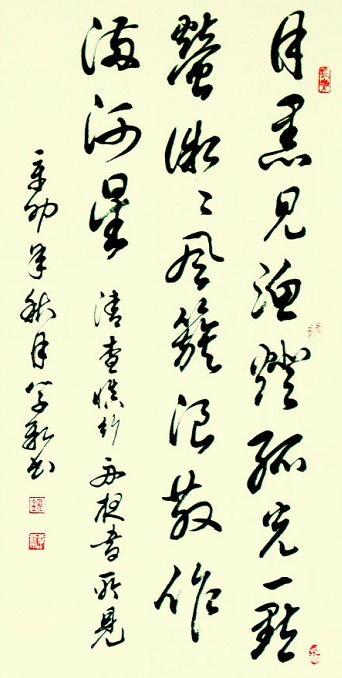 月黑見漁燈孤光一點
螢微々風簇浪散作
滿河星 清查慎行舟夜書所見
辛卯年秋月學書